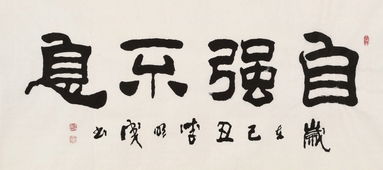 自强不息
歲在己丑李明茂书